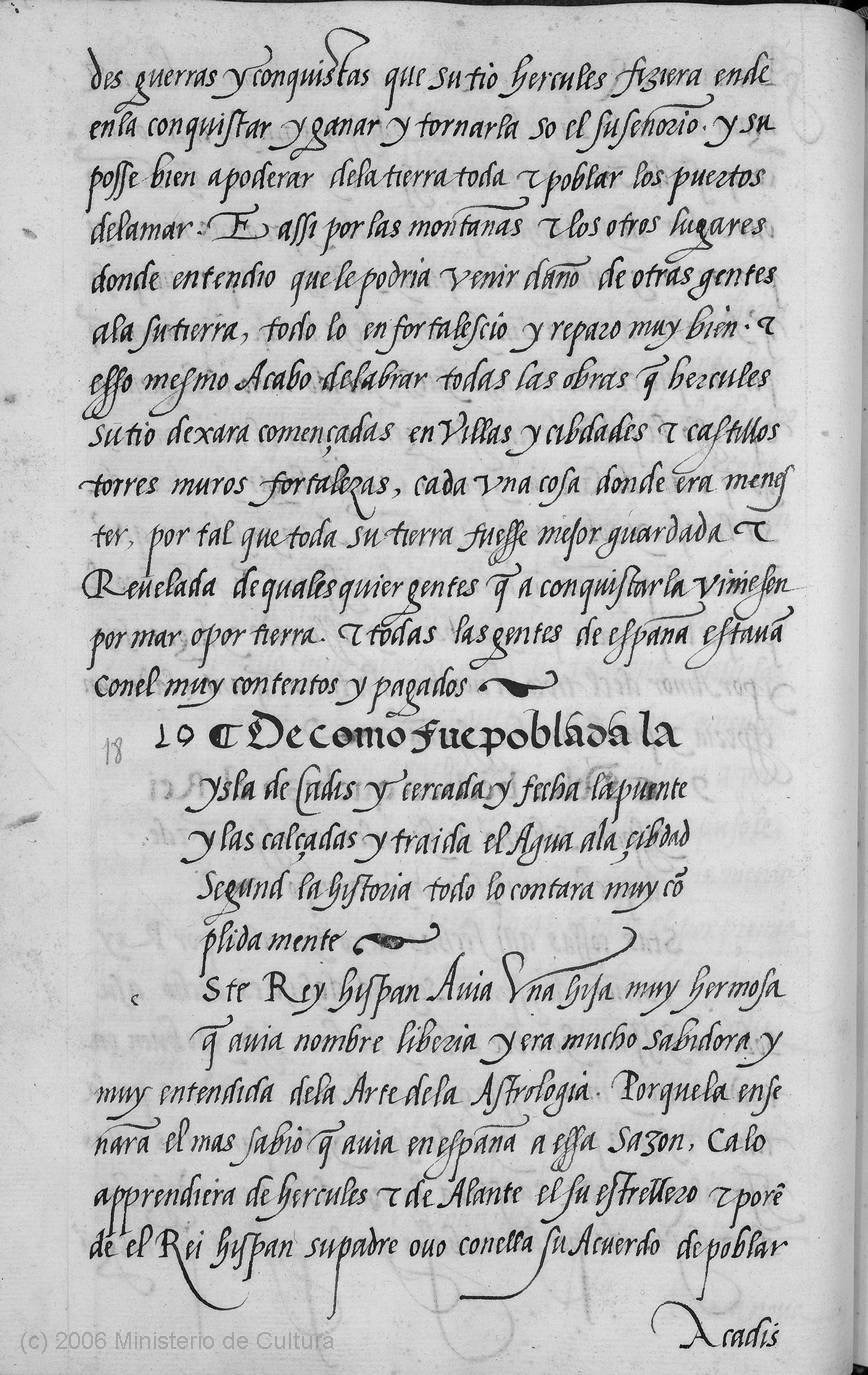 des guerras y conquistas que su tio hercules fiziera ende
enla conquistar y ganar y tornarla so el su señorio. y su
posse bien apoderar dela tierra toda τ poblar los puertos
dela mar. E assi por las montañas τ los otros lugares
donde entendio que le podria venir daño de otras gentes
ala su tierra, todo lo enfortalescio y reparo muy bien. τ
esso mesmo Acabo de labrar todas las obras q̃ hercules
su tio dexara començadas en Villas y cibdades τ castillos
torres muros fortalezas, cada vna cosa donde era menes
ter, por tal que toda su tierra fuesse mejor guardada τ
Revelada de quales quier gentes q̃ a conquistarla viniesen
por mar o por tierra. τ todas las gentes de españa estavã
conel muy contentos y pagados
18 19 ¶ De como fue poblada la
ysla de Cadis y cercada y fecha la puente
y las calçadas y traida el Agua ala çibdad
Segund la historia todo lo contara muy cõ
plida mente
e Ste Rey hispan Avia Vna hija muy hermosa
q̃ avia nombre liberia y era mucho sabidora y
muy entendida dela Arte dela Astrologia. Porque la ense
ñara el mas sabio q̃ avia en españa a essa sazon, Ca lo
apprendiera de hercules τ de Alante el su estrellero τ porẽ
de el Rei hispan su padre ouo conella su Acuerdo de poblar
A cadis
(c) 2006 Ministerio de Cultura